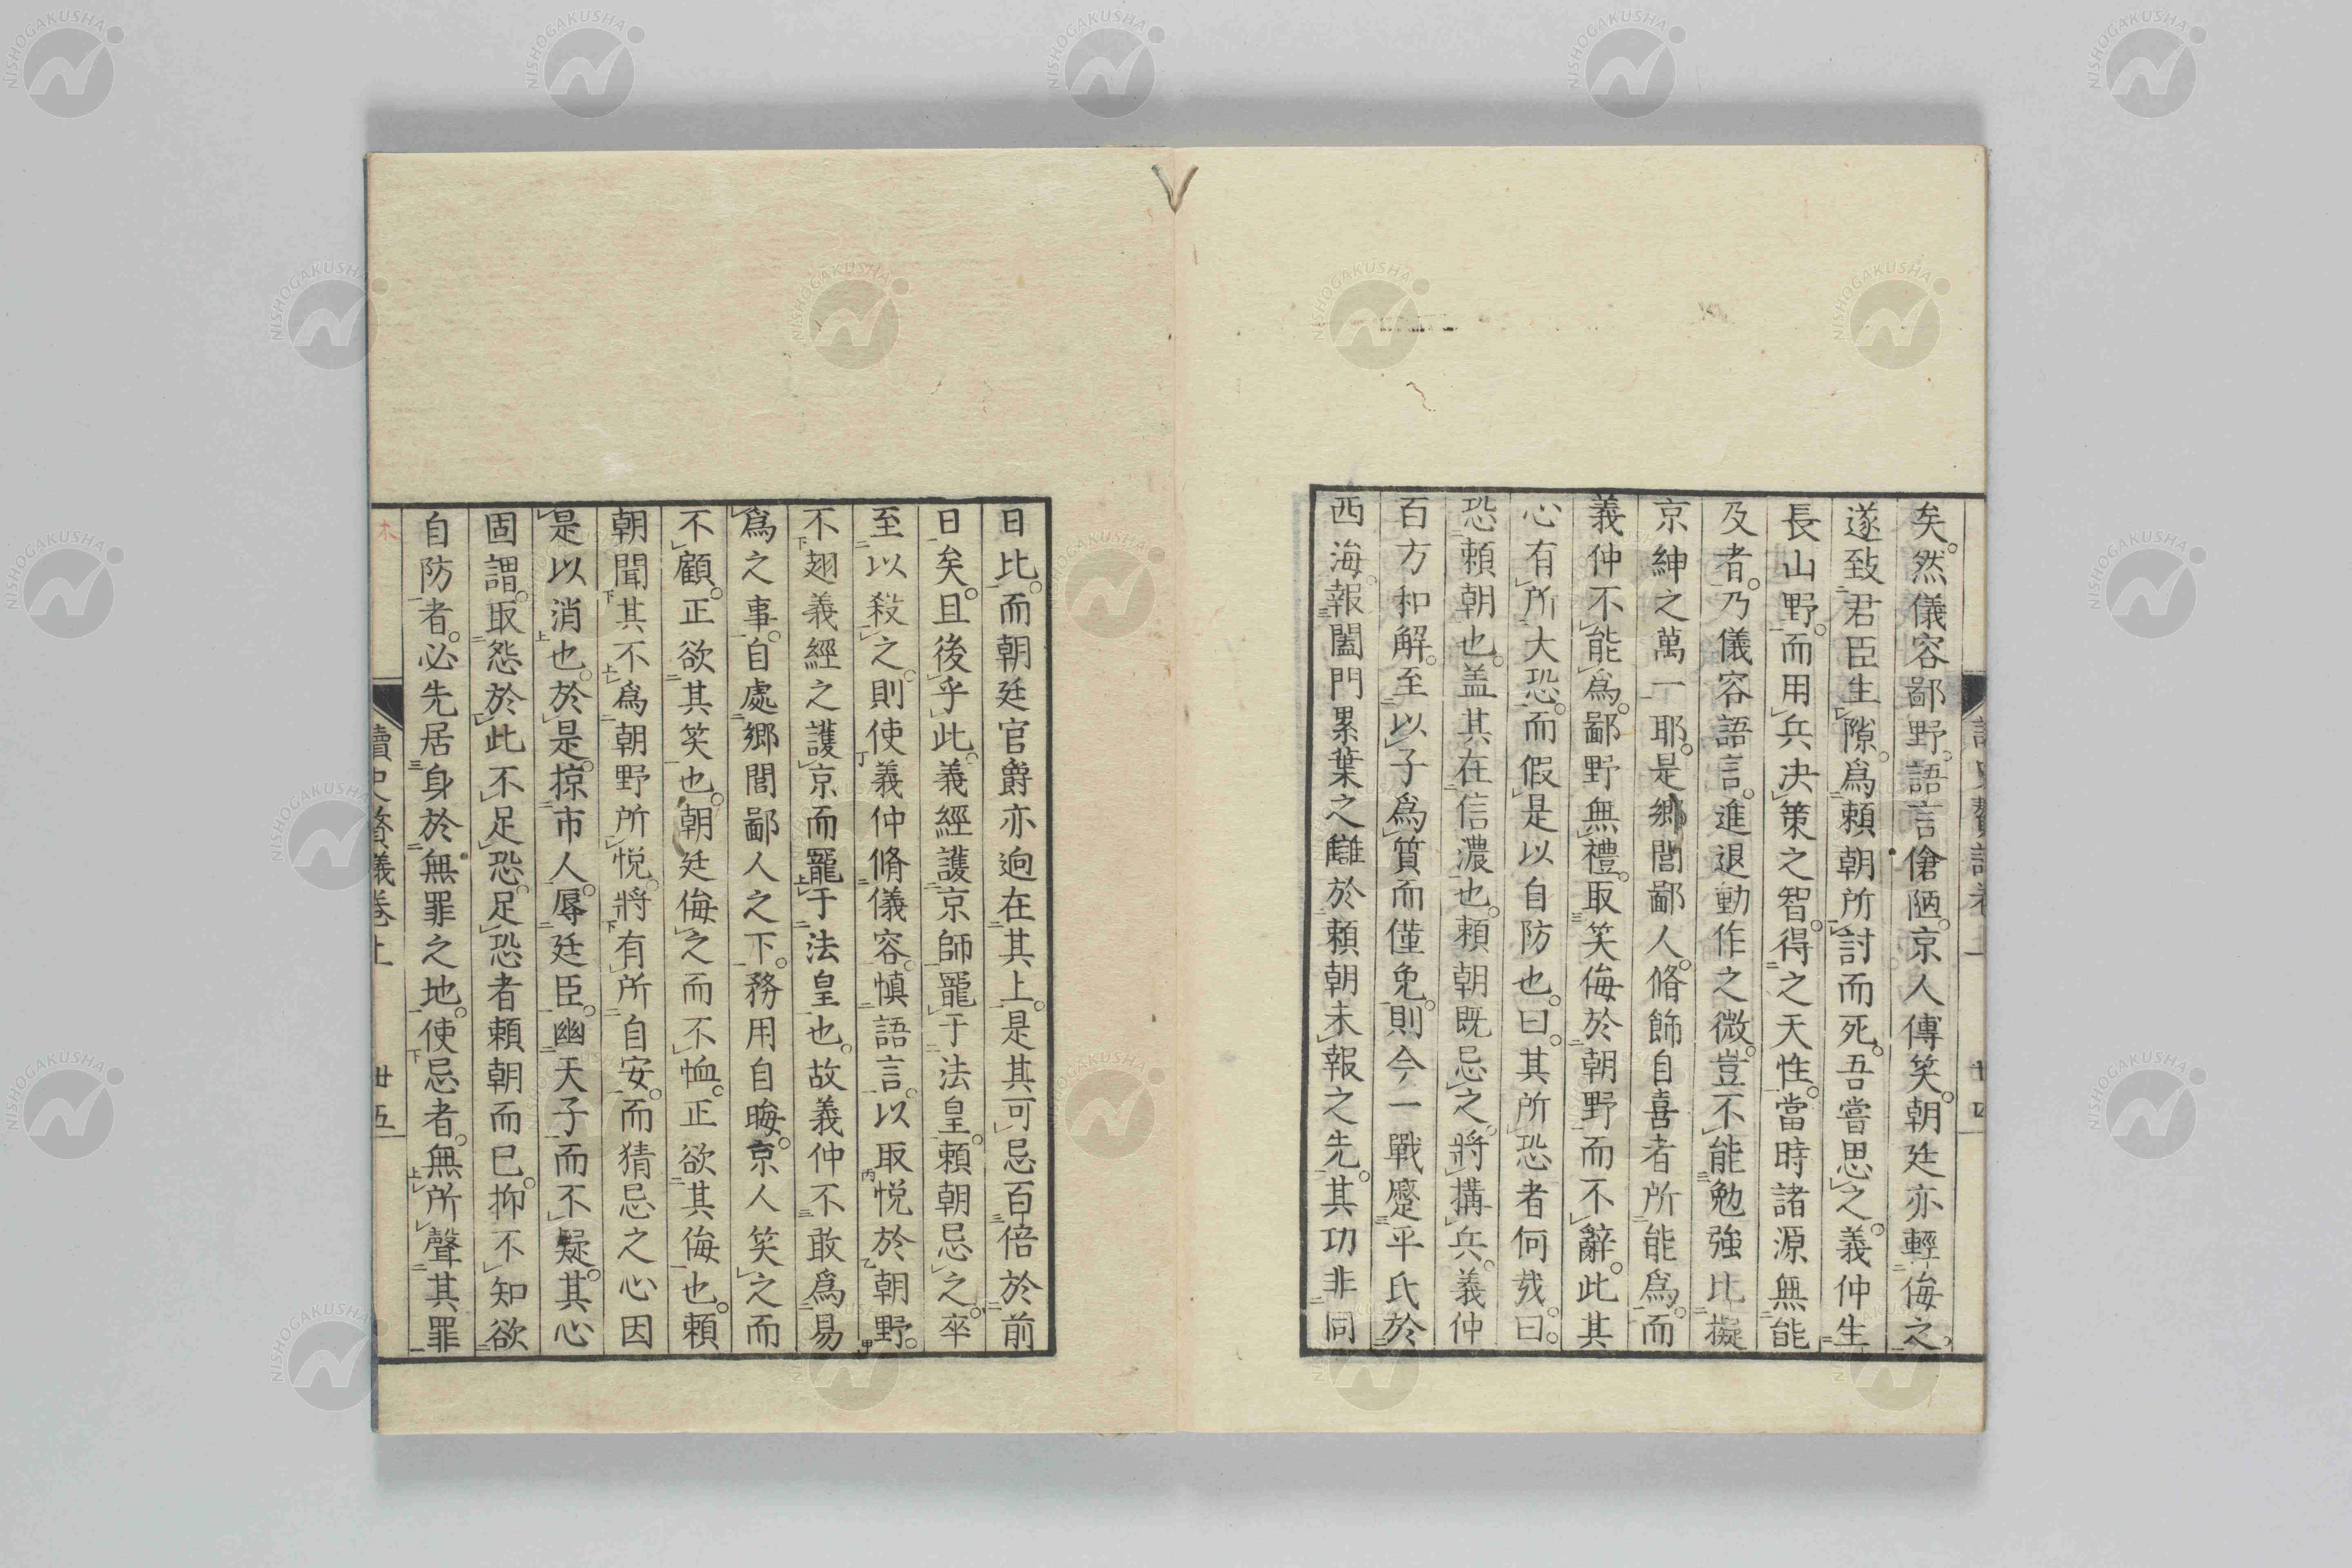 矣。然儀容鄙野。語言傖陋。京人傳笑。朝廷亦輕侮之。
遂致君臣生隙。爲頼朝所討而死。吾嘗思之。義仲生
長山野。而用兵決策之智。得之天性。當時諸源無能
及者。乃儀容語言。進退動作之微。豈不能勉強比擬
京紳之萬一耶。是鄉閭鄙人。脩飾自喜者所能爲。而
義仲不能爲。鄙野無禮。取笑侮於朝野而不辭。此其
心有所大恐。而假是以自防也。曰。其所恐者何哉。曰。
恐頼朝也。盖其在信濃也。頼朝既忌之。將搆兵。義仲
百方和解。至以子爲質而僅免。則今一戰蹙平氏於
西海。報闔門累葉之讎於頼朝未報之先。其功非同
讀史贅議卷上
廿四
日比。而朝廷官爵亦逈在其上。是其可忌百倍於前
日矣。且後乎此。義經護京師寵于法皇。頼朝忌之。卒
至以殺之。則使義仲脩儀容。慎語言。以取悦於朝野。
不翅義經之護京而寵于法皇也。故義仲不敢爲易
爲之事。自處鄉閭鄙人之下。務用自晦。京人笑之而
不顧。正欲其笑也。朝廷侮之而不恤。正欲其侮也。頼
朝聞其不爲朝野所悦。將有所自安。而猜忌之心因
是以消也。於是。掠市人。辱廷臣。幽天子而不疑。其心
固謂。取怨於此不足恐。足恐者頼朝而已。抑不知欲
自防者。必先居身於無罪之地。使忌者。無所聲其罪
讀史贅議卷上
廿五